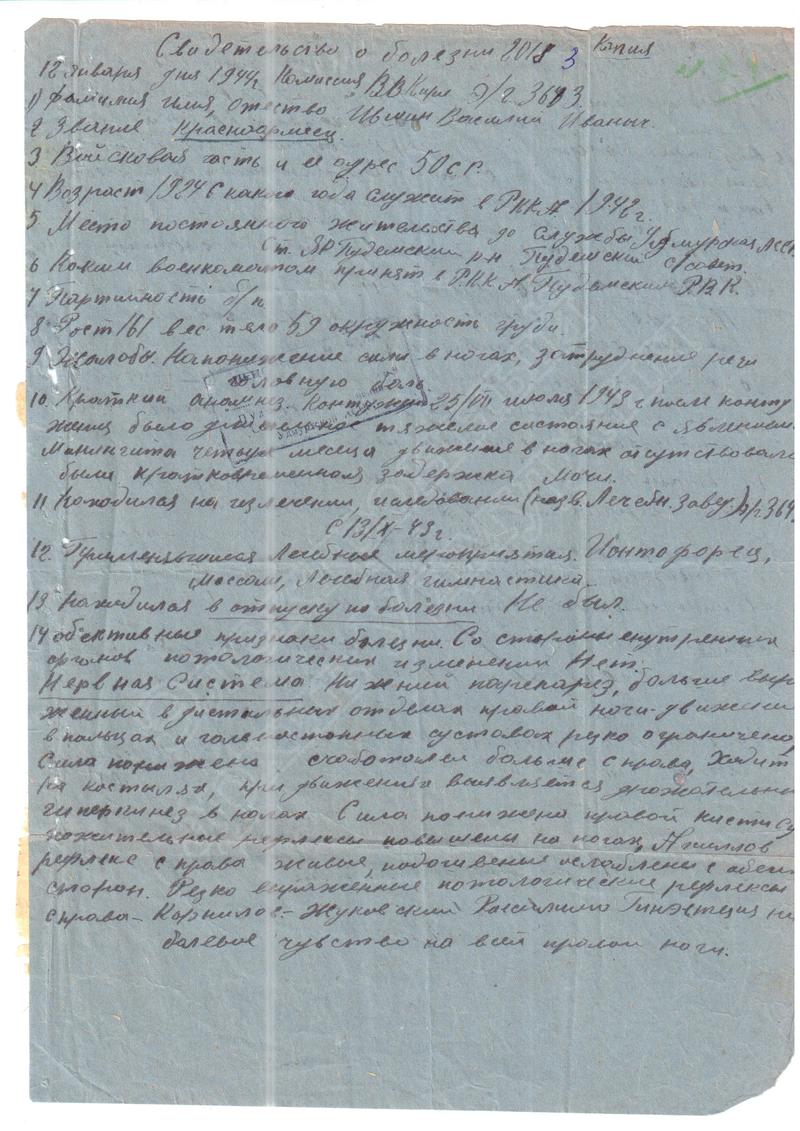 Свидетельство о болезни 2018 3 Капия
12 января дня 1944г Комиссия В.В. при Э/г 3643.
1) Фамилия имя, отество Ившин Василий Иваныч.
2 Звание Красноармеец.
3 Войсковая часть и её адрес 50 с г.
4 Возраст 1924 С какого года служит в РККА 1942г.
5 Место постоянного жительства до службы Удмурская АССР
ст. ЯР Пудемский р-н Пудемский с/совет.
6 Каким военкоматом принят в РККА Пудемским Р.В.К.
7 Партийность б/п
8 Рост 161 вес тело 59 окружность груди.
9 Жалобы. На понижение силы в ногах, затруднение речи
головную боль
10. Краткий анамнез. Контужен 25/VII июля 1943 г после конту
жения было длительное тяжелое состояние с явлением
Менингита четыре месеца движение в ногах отсутствовали
была кратковременная задержка мочи.
11 Находился на излечении, иследовании (назв. Лечебн. завед.) э/г 364
С 13/X-43г.
12. Применявшиеся Лечебные мероприятия. Ионтофорез,
Массаж, Лечебная гимнастика.
13 находился в отпуску по болезни Не был.
14 обективные признаки болезни. Со стороны внутренних
органов потологических изменений Нет.
Нервная Система Нижний парапарез, больше выра
женный в дистальных отделах правой ноги. движени
в пальцах и голеностопных суставах резко ограничено,
Сила понижена больше с права, Ходит
на костылях, при движениях выявляется дрожательный
гиперкинез в ногах. Сила понижена правой кисти Су
хожительные рефлексы повышены на ногах, Ахиллов
рефлекс с права живые, подошвеные ослаблены с обеих
сторон. Резко выраженные потологические рефлексы
справа- Жуковский Россолимо на
болевое чувство на всей правой ноги.